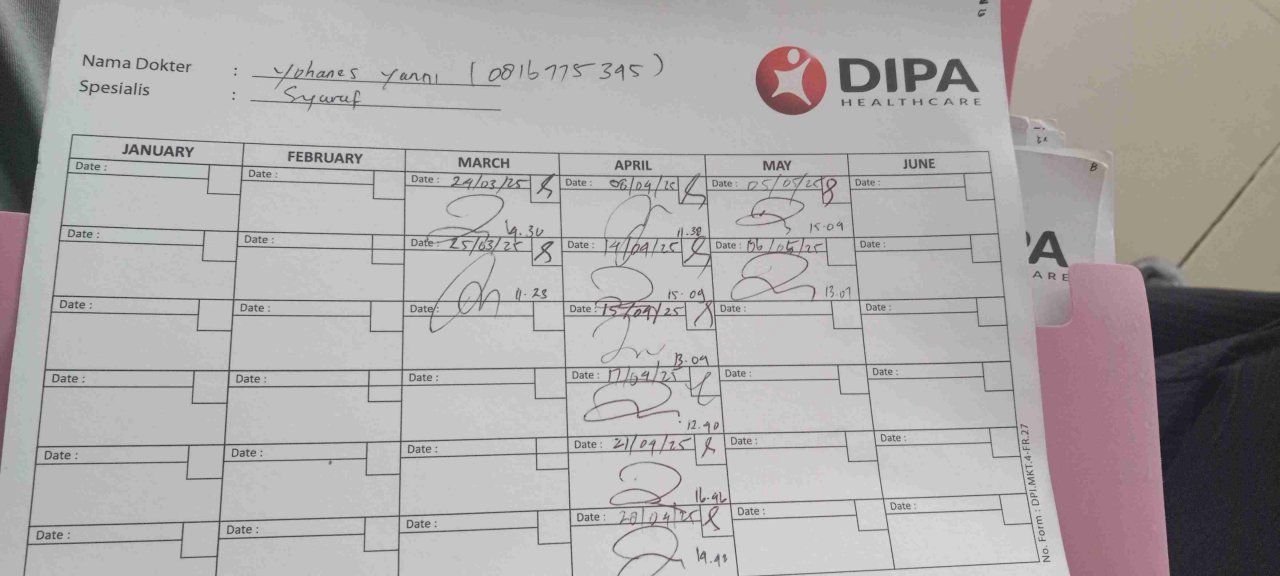 Nama Dokter : Yohanes Yanni (0816775395)
Spesialis : Syaraf
DIPA
HEALTHCARE
JANUARY FEBRUARY MARCH APRIL MAY JUNE
Date : Date : Date : 24/03/25 Date : 08/04/25 Date : 05/05/25 Date :
14.30 11.38 15.09
Date : Date : Date : 25/03/25 Date : 14/04/25 Date : 06/05/25 Date :
11.23 15.09 13.07
Date : Date : Date : Date : 15/04/25 Date : Date :
13.09
Date : Date : Date : Date : 17/04/25 Date : Date :
12.40
Date : Date : Date : Date : 21/04/25 Date : Date :
16.46
Date : Date : Date : Date : 28/04/25 Date : Date :
14.43
No. Form : DPI.MKT.4-FR.27
PA
CARE
B